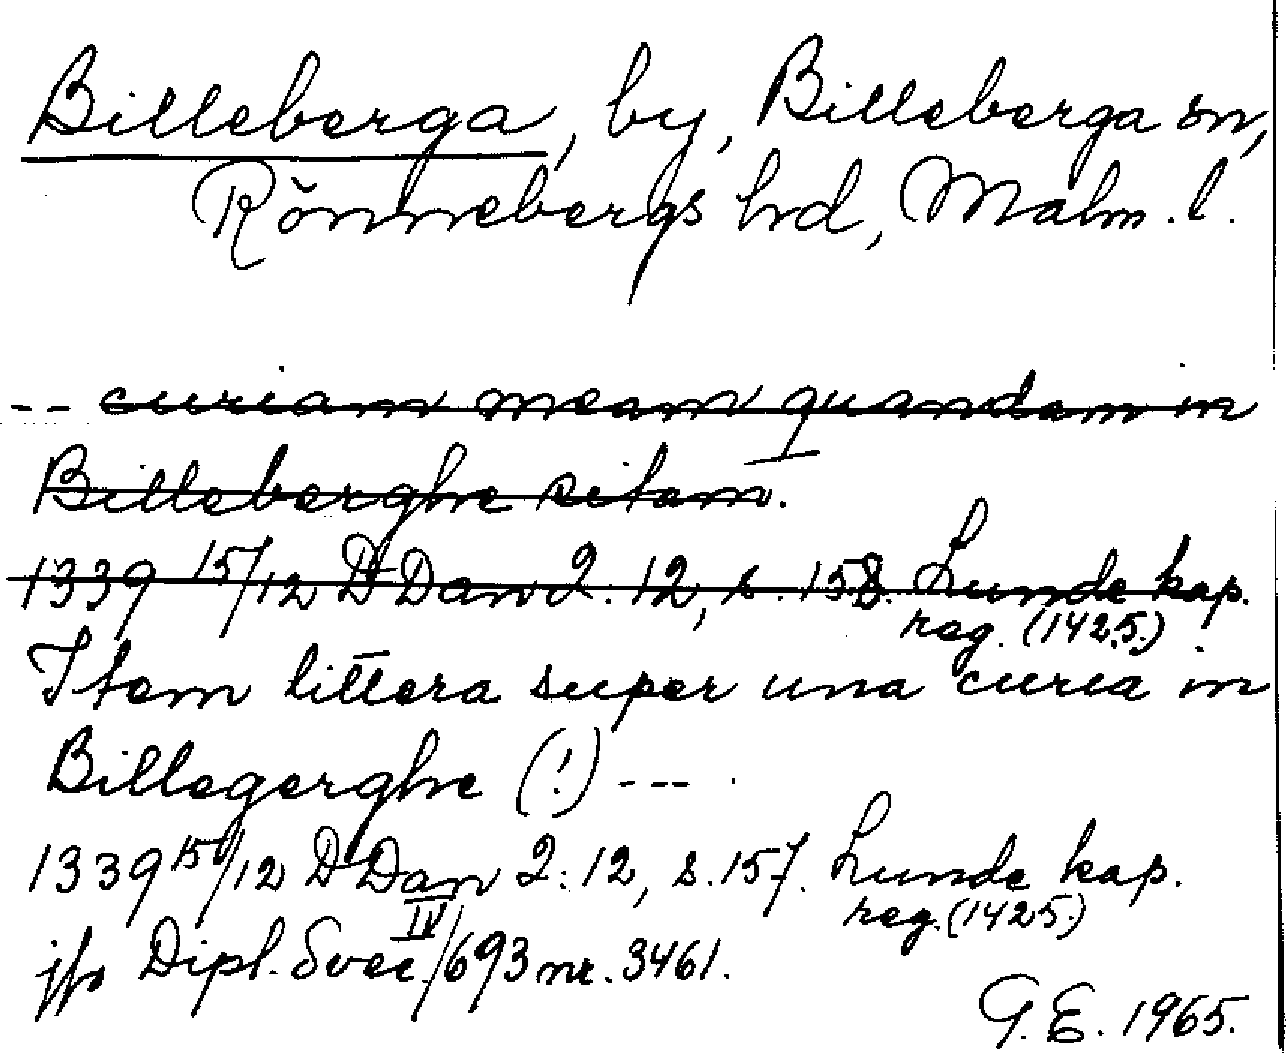 Billeberga, by, Billeberga sn,
Rönnebergs hrd, Malm. l.
-- curiam meam quandam in
Billeberghe sitam.
1339 15/12 D Dan 2: 12, s. 158. Lunde kap.
reg. (1425.)
Item littera super una curia in
Billegerghe (!) ---
1339 15/12 D Dan 2: 12, s. 157. Lunde kap.
reg. (1425.)
jfr Dipl. Svec. IV/693 nr. 3461.
G. E. 1965.